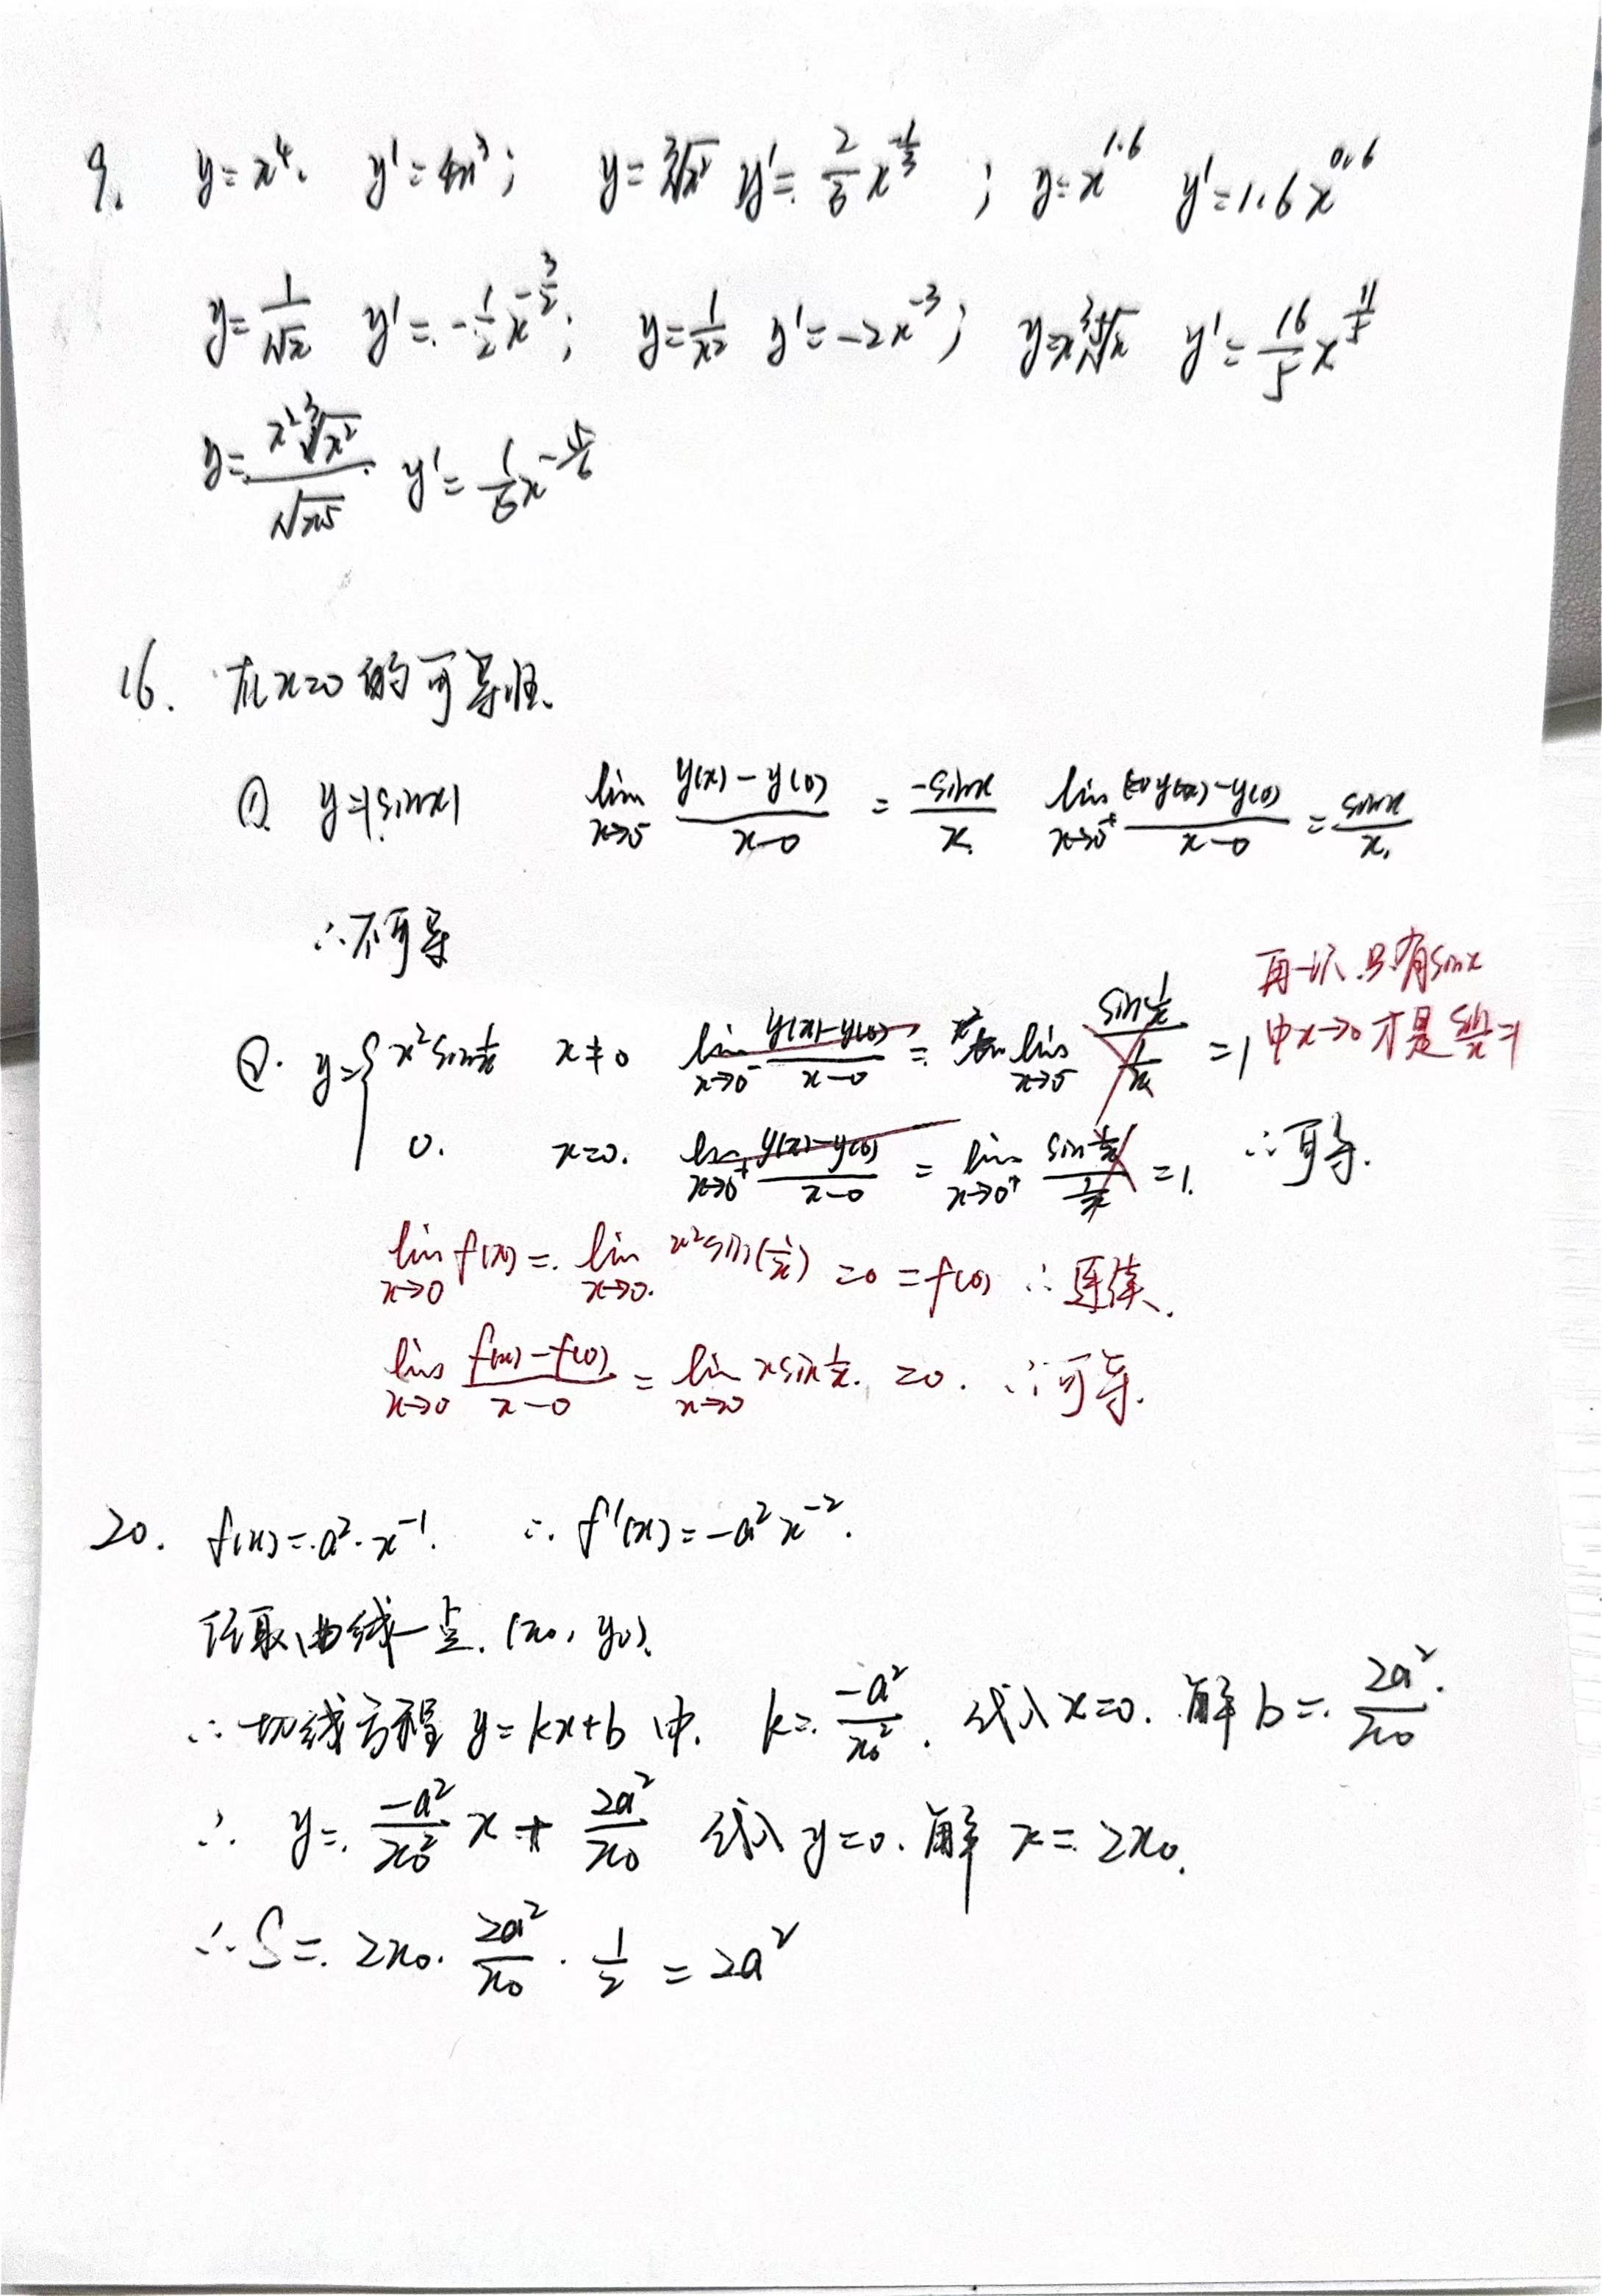 9. y=x⁴. y'=4x³; y=∛x² y'=2/3 x^(-1/3); y=x^1.6 y'=1.6x^0.6
y=1/√x y'=-1/2 x^(-3/2); y=1/x² y'=-2x^(-3); y=x³⁵√x y'=16/5 x^(11/5)
y=x²∛x²/√x⁵ y'=1/6 x^(-5/6)
16. 在x=0的可导性.
① y=|sinx| lim x→0⁻ (y(x)-y(0))/(x-0) = -sinx/x. lim x→0⁺ (y(x)-y(0))/(x-0) = sinx/x.
∴不可导
再一次.只有sinx
中x→0才是sinx/x=1
②. y={x²sin1/x x≠0 lim x→0⁻ (y(x)-y(0))/(x-0) = lim x→0⁻ (sin1/x)/(1/x) =1
0. x=0. lim x→0⁺ (y(x)-y(0))/(x-0) = lim x→0⁺ (sin1/x)/(1/x) =1. ∴可导.
lim x→0 f(x)=. lim x→0. x²sin(1/x) =0=f(0) ∴连续.
lim x→0 (f(x)-f(0))/(x-0) = lim x→0 xsin1/x. =0. ∴可导.
20. f(x)=a²·x⁻¹. ∴f'(x)=-a²x⁻².
任取曲线一点.(x₀,y₀).
∴切线方程 y=kx+b中. k=-a²/x₀². 代入x=0. 解b=2a²/x₀.
∴ y=-a²/x₀² x+2a²/x₀ 代入y=0.解x=2x₀.
∴S=2x₀·2a²/x₀·1/2=2a²